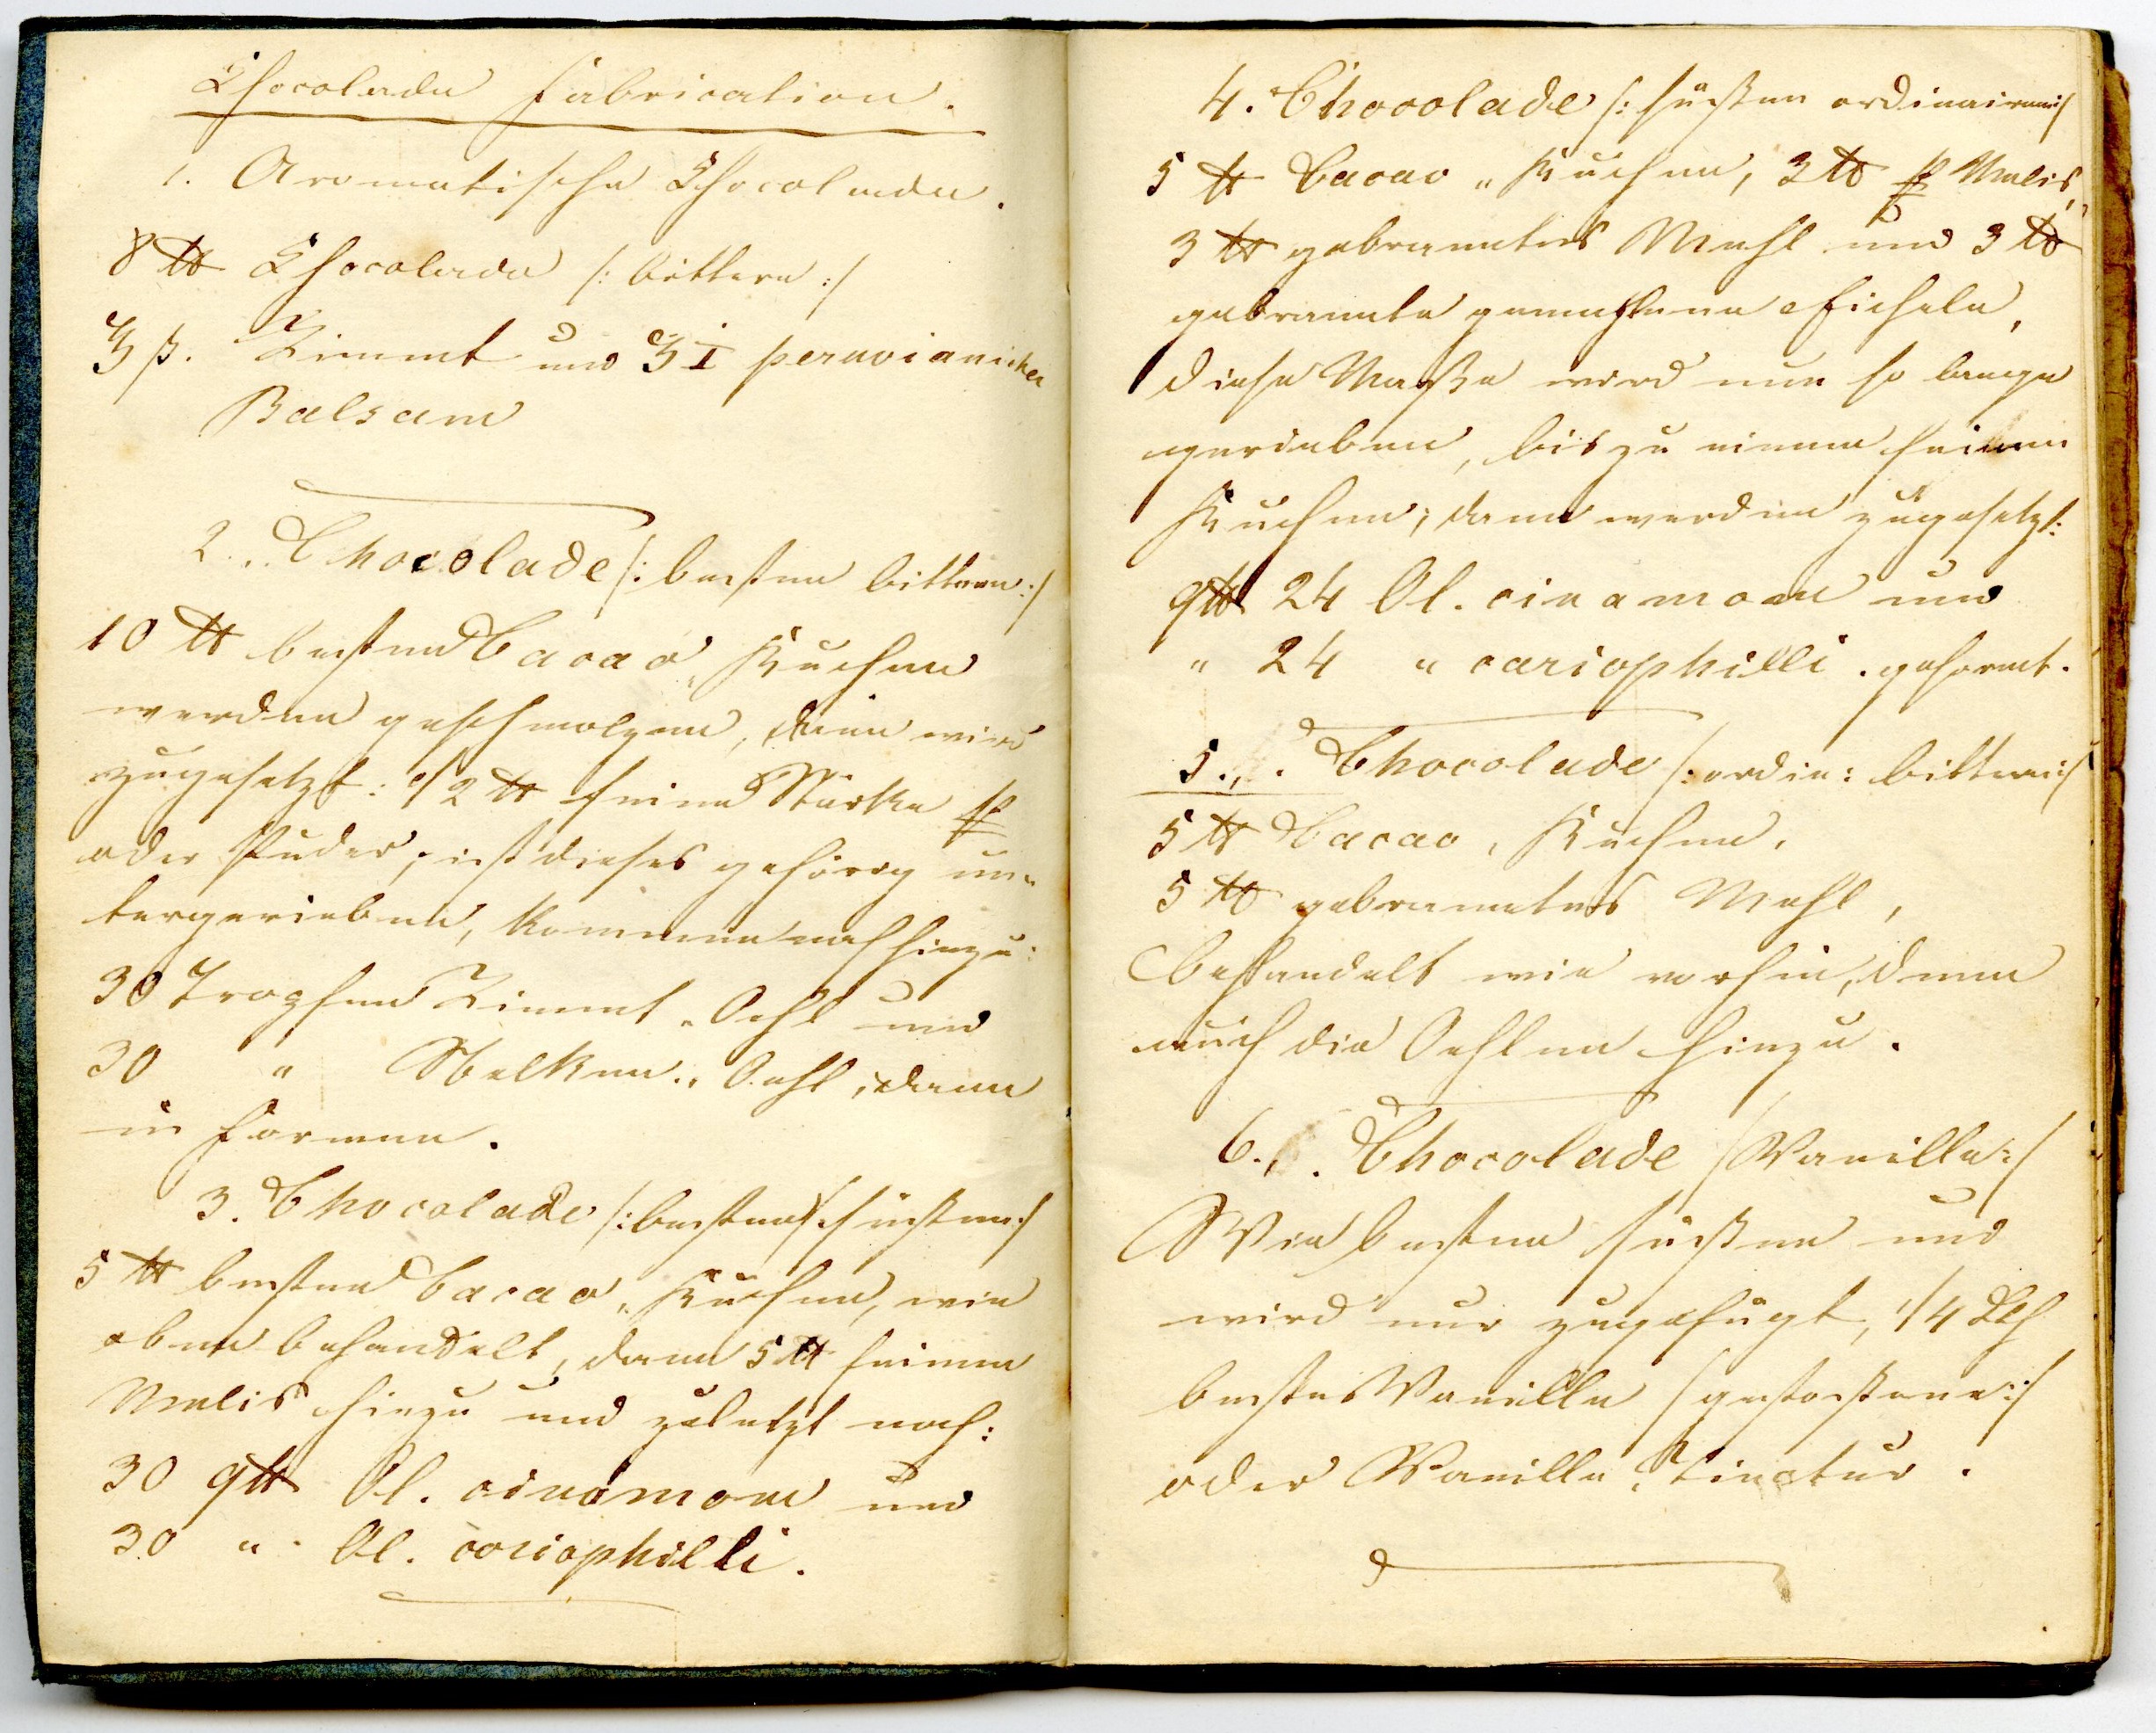 Chocolade Fabrication.
1. Aromatische Chocolade.
8 ℔ Chocolade /: bittere :/
℥ ß. Zimmt und ʒ I peruvianischer
Balsam
2. Chocolade /: besten bittern :/
10 ℔ besten Cacao „ Kuchen
werden geschmolzen, dann wird
zugesetzt: 1/2 ℔ feine Stärke
oder Puder, ist dieses gehörig un„
tergerieben, kommen noch hinzu:
30 Tropfen Zimmt „ Oehl und
30 " Nelken „ Oehl, dann
in Formen.
3. Chocolade /: besten süssten :/
5 ℔ besten Cacao „ Kuchen, wie
oben behandelt, dann 5 ℔ feinen
Melis hinzu und zuletzt noch:
30 gtt Ol. cinamom und
30 " Ol. coriophilli.
4. Chocolade /: süssen ordinairen :/
5 ℔ Cacao „ Kuchen, 3 ℔ Melis,
3 ℔ gebranntes Mehl und 3 ℔
gebrannte gemahlene Eicheln,
diese Masse wird nun so lange
gerieben, bis zu einem feinen
Kuchen; dann werden zugesetzt:
gtt 24 Ol. cinamom und
" 24 " cariophilli. geformt.
5. Chocolade /: ordin: bittern :/
5 ℔ Cacao „ Kuchen,
5 ℔ gebranntes Mehl,
behandelt wie vorhin, denn
auch die Oehlen hinzu.
6. Chocolade / Vanille :/
Wie besten süssen und
wird nur zugefügt, 1/4 Lth
beste Vanille / gestossene :/
oder Vanille „ Tinctur.